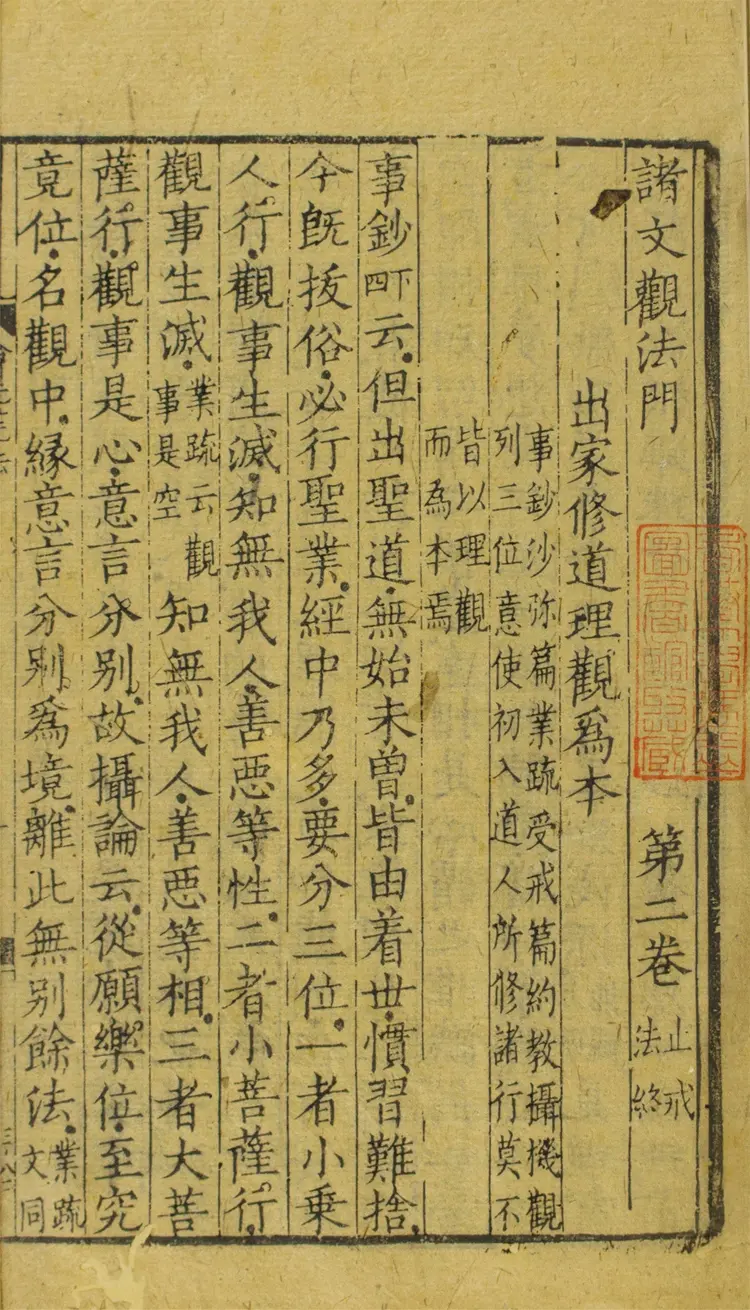 諸文觀法門　第二卷　止戒法終
出家修道理觀爲本
事鈔沙弥篇業疏受戒篇約教攝機觀
列三位意使初入道人所修諸行莫不
皆以理觀
而為本焉
事鈔四下云但出聖道無始未曽皆由着世慣習難捨
今旣拔俗必行聖業經中乃多要分三位一者小乗
人行觀事生滅知無我人善惡等性二者小菩薩行
觀事生滅業疏云觀事是空知無我人善惡等相三者大菩
薩行觀事是心意言分别故攝論云從願樂位至究
竟位名觀中縁意言分别爲境離此無别餘法業疏文同